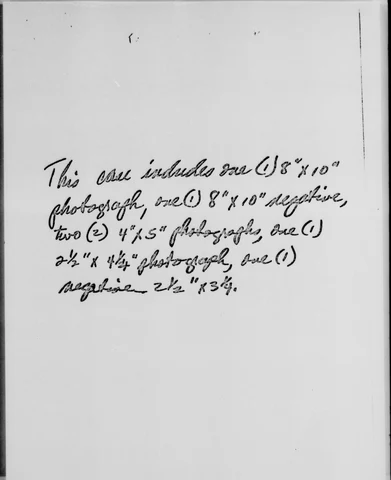 This case includes one (1) 8" x 10"
photograph, one (1) 8" x 10" negative,
two (2) 4" x 5" photographs, one (1)
2½" x 4¼" photograph, one (1)
negative 2½" x 3¼.